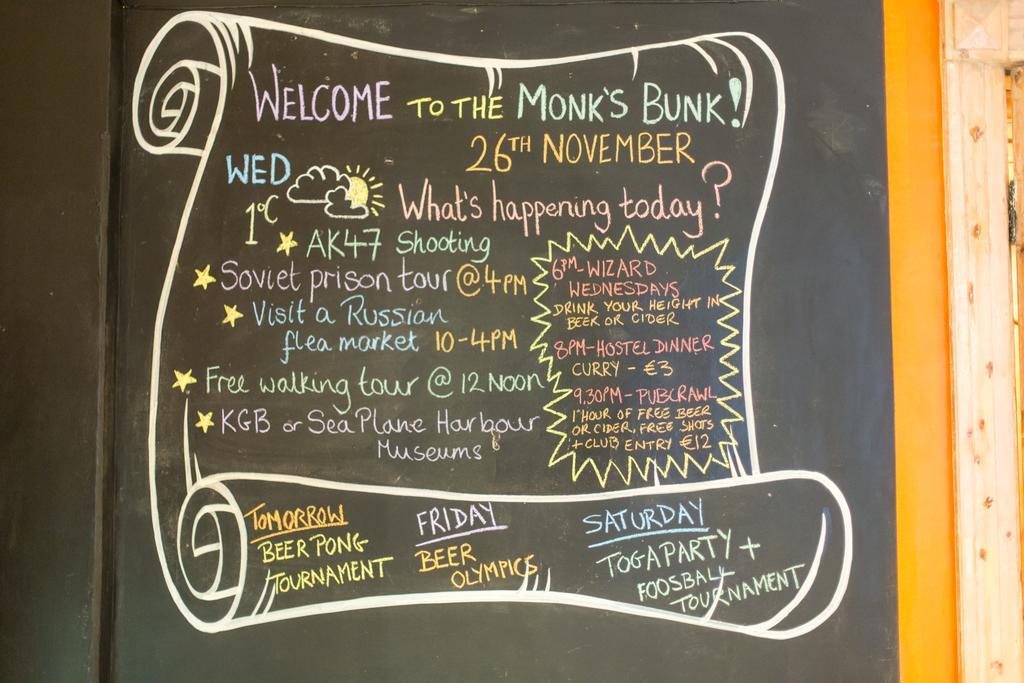 WELCOME TO THE MONK'S BUNK!
26TH NOVEMBER
WED
1°C
What's happening today?
AK47 Shooting
Soviet prison tour @ 4PM
Visit a Russian
flea market 10-4PM
Free walking tour @ 12 NOON
KGB or Sea Plane Harbour
Museums
6PM-WIZARD
WEDNESDAYS
DRINK YOUR HEIGHT IN
BEER OR CIDER
8PM-HOSTEL DINNER
CURRY - €3
9.30PM-PUBCRAWL
1 HOUR OF FREE BEER
OR CIDER, FREE SHOTS
+ CLUB ENTRY €12
TOMORROW
BEER PONG
TOURNAMENT
FRIDAY
BEER
OLYMPICS
SATURDAY
TOGA PARTY +
FOOSBALL
TOURNAMENT